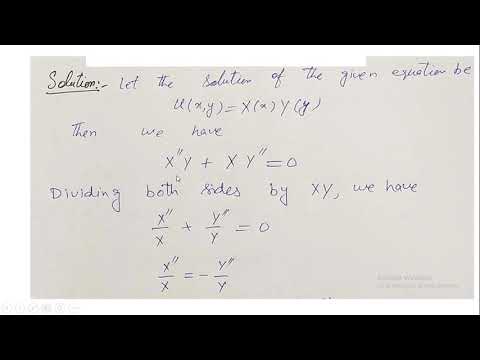 Solution:- Let the solution of the given equation be
U(x,y) = X(x) Y(y)
Then we have
X''Y + X Y'' = 0
Dividing both sides by XY, we have
X''/X + Y''/Y = 0
X''/X = - Y''/Y